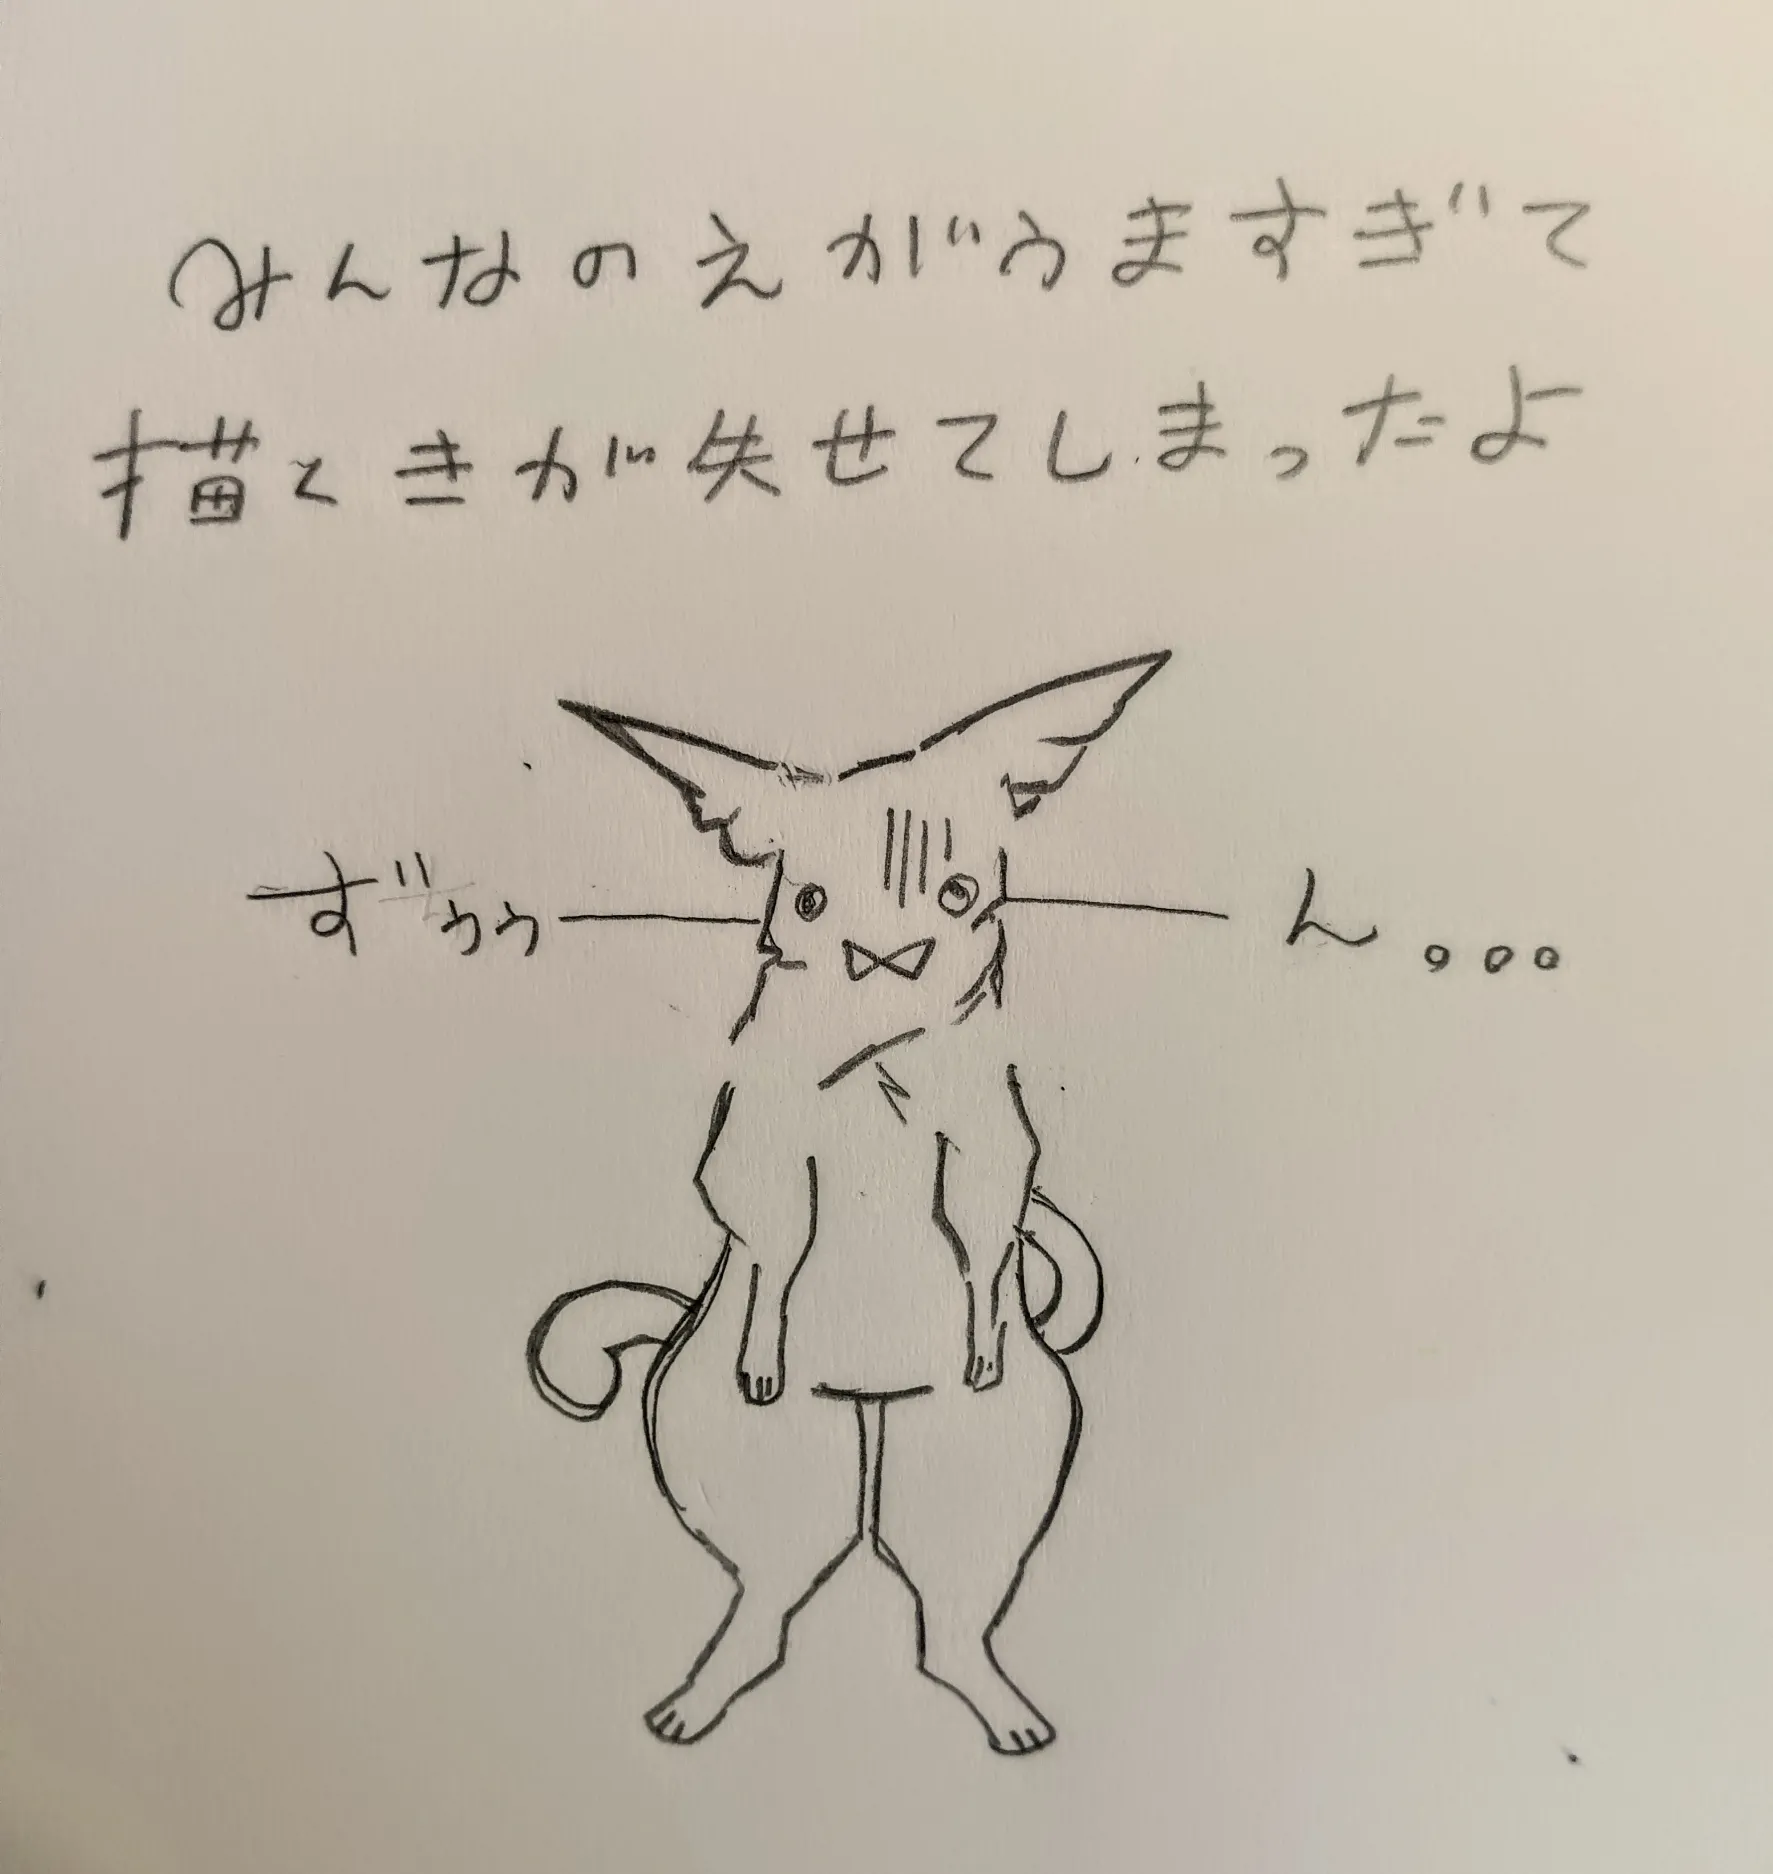 みんなのえがうますぎて
描くきが失せてしまったよ
ずぅぅ ん。。。